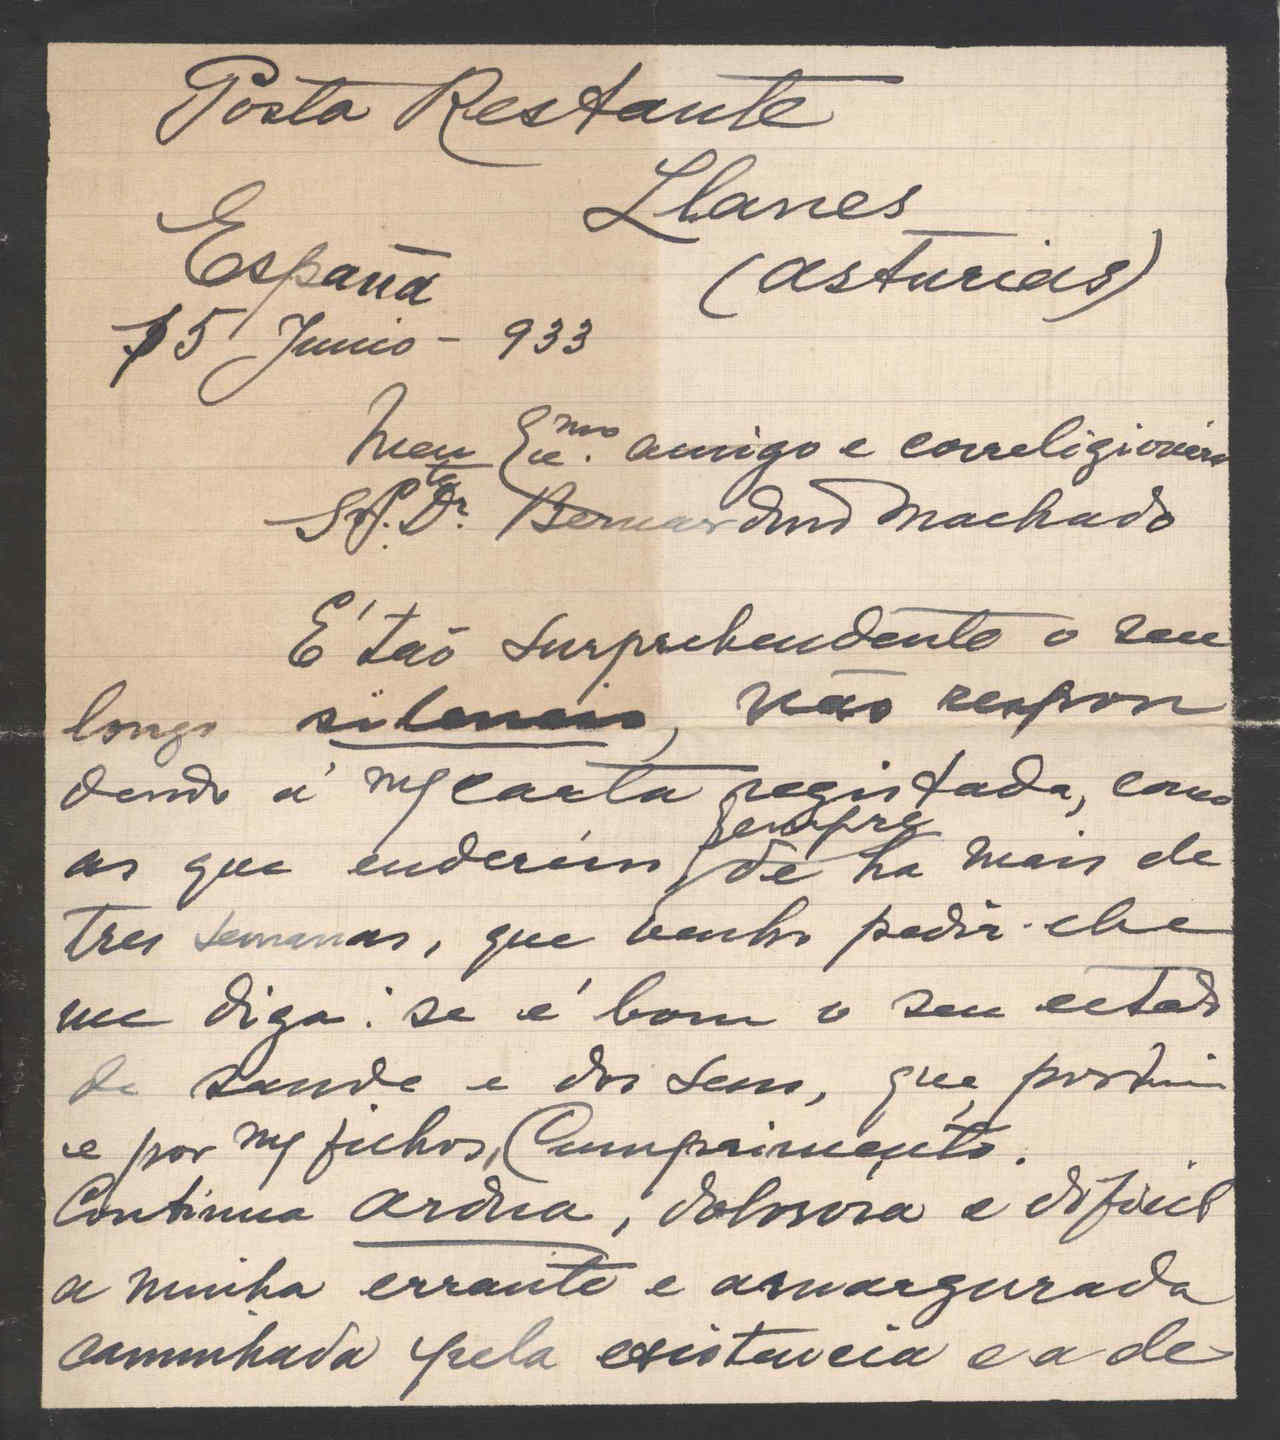 Posta Restante
Llanes
España (Asturias)
15 Junio - 933
Meu Exmo. amigo e correligionário
Sr. Dr. Bernardino Machado
É tão surprehendente o seu
longo silencio, não respon
dendo á mª carta registada, como
as que enderecei sempre de ha mais de
tres semanas, que venho pedir-lhe
me diga: se é bom o seu estado
de saude e dos seus, que, por mim
e por mª filhos, Cumprimento.
Continua ardua, dolorosa e dificil
a minha errante e amargurada
caminhada pela existencia e a de